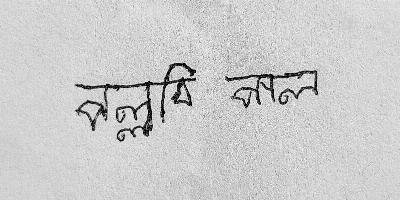 পল্লবি পাল